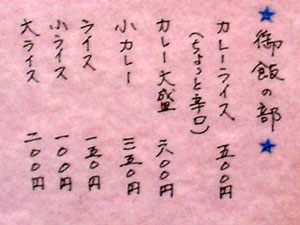 ★御飯の部★
カレーライス 五〇〇円
(ちょっと辛口)
カレー大盛 六〇〇円
小カレー 三五〇円
ライス 一五〇円
小ライス 一〇〇円
大ライス 二〇〇円